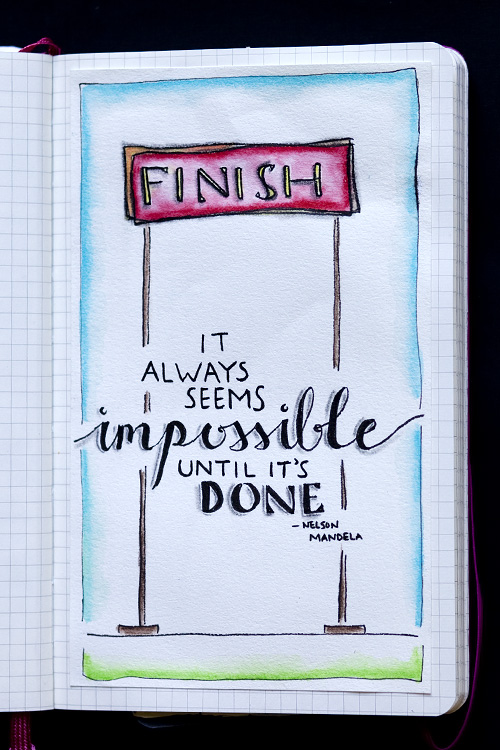 FINISH
IT
ALWAYS
SEEMS
impossible
UNTIL IT'S
DONE
- NELSON
MANDELA